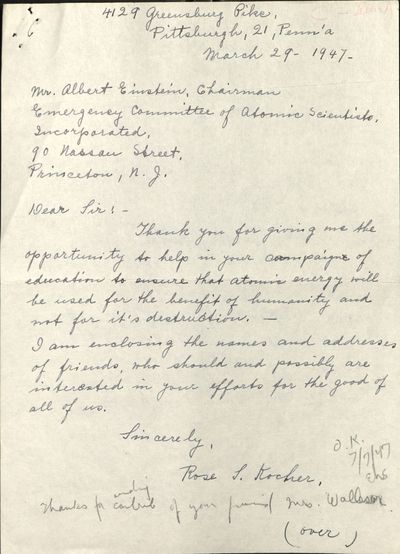 4129 Greensburg Pike,
Pittsburgh, 21, Penn'a
March 29 - 1947 -
Mr. Albert Einstein, Chairman
Emergency Committee of Atomic Scientists,
Incorporated,
90 Nassau Street,
Princeton, N. J.
Dear Sir: -
Thank you for giving me the
opportunity to help in your campaign of
education to ensure that atomic energy will
be used for the benefit of humanity and
not for it's destruction. —
I am enclosing the names and addresses
of friends, who should and possibly are
interested in your efforts for the good of
all of us.
Sincerely,
O.K.
7/7/47
Rose S. Kocher,
Thanks for of your friend Mrs.
(over)